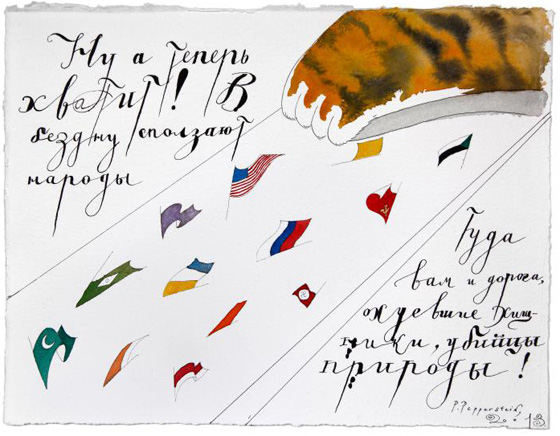 Ну а теперь
хватит! В
бездну сползают
народы
Туда
вам и дорога,
ждевшие хищ-
ники, убийцы
природы!
P. Pepperstein,
2013